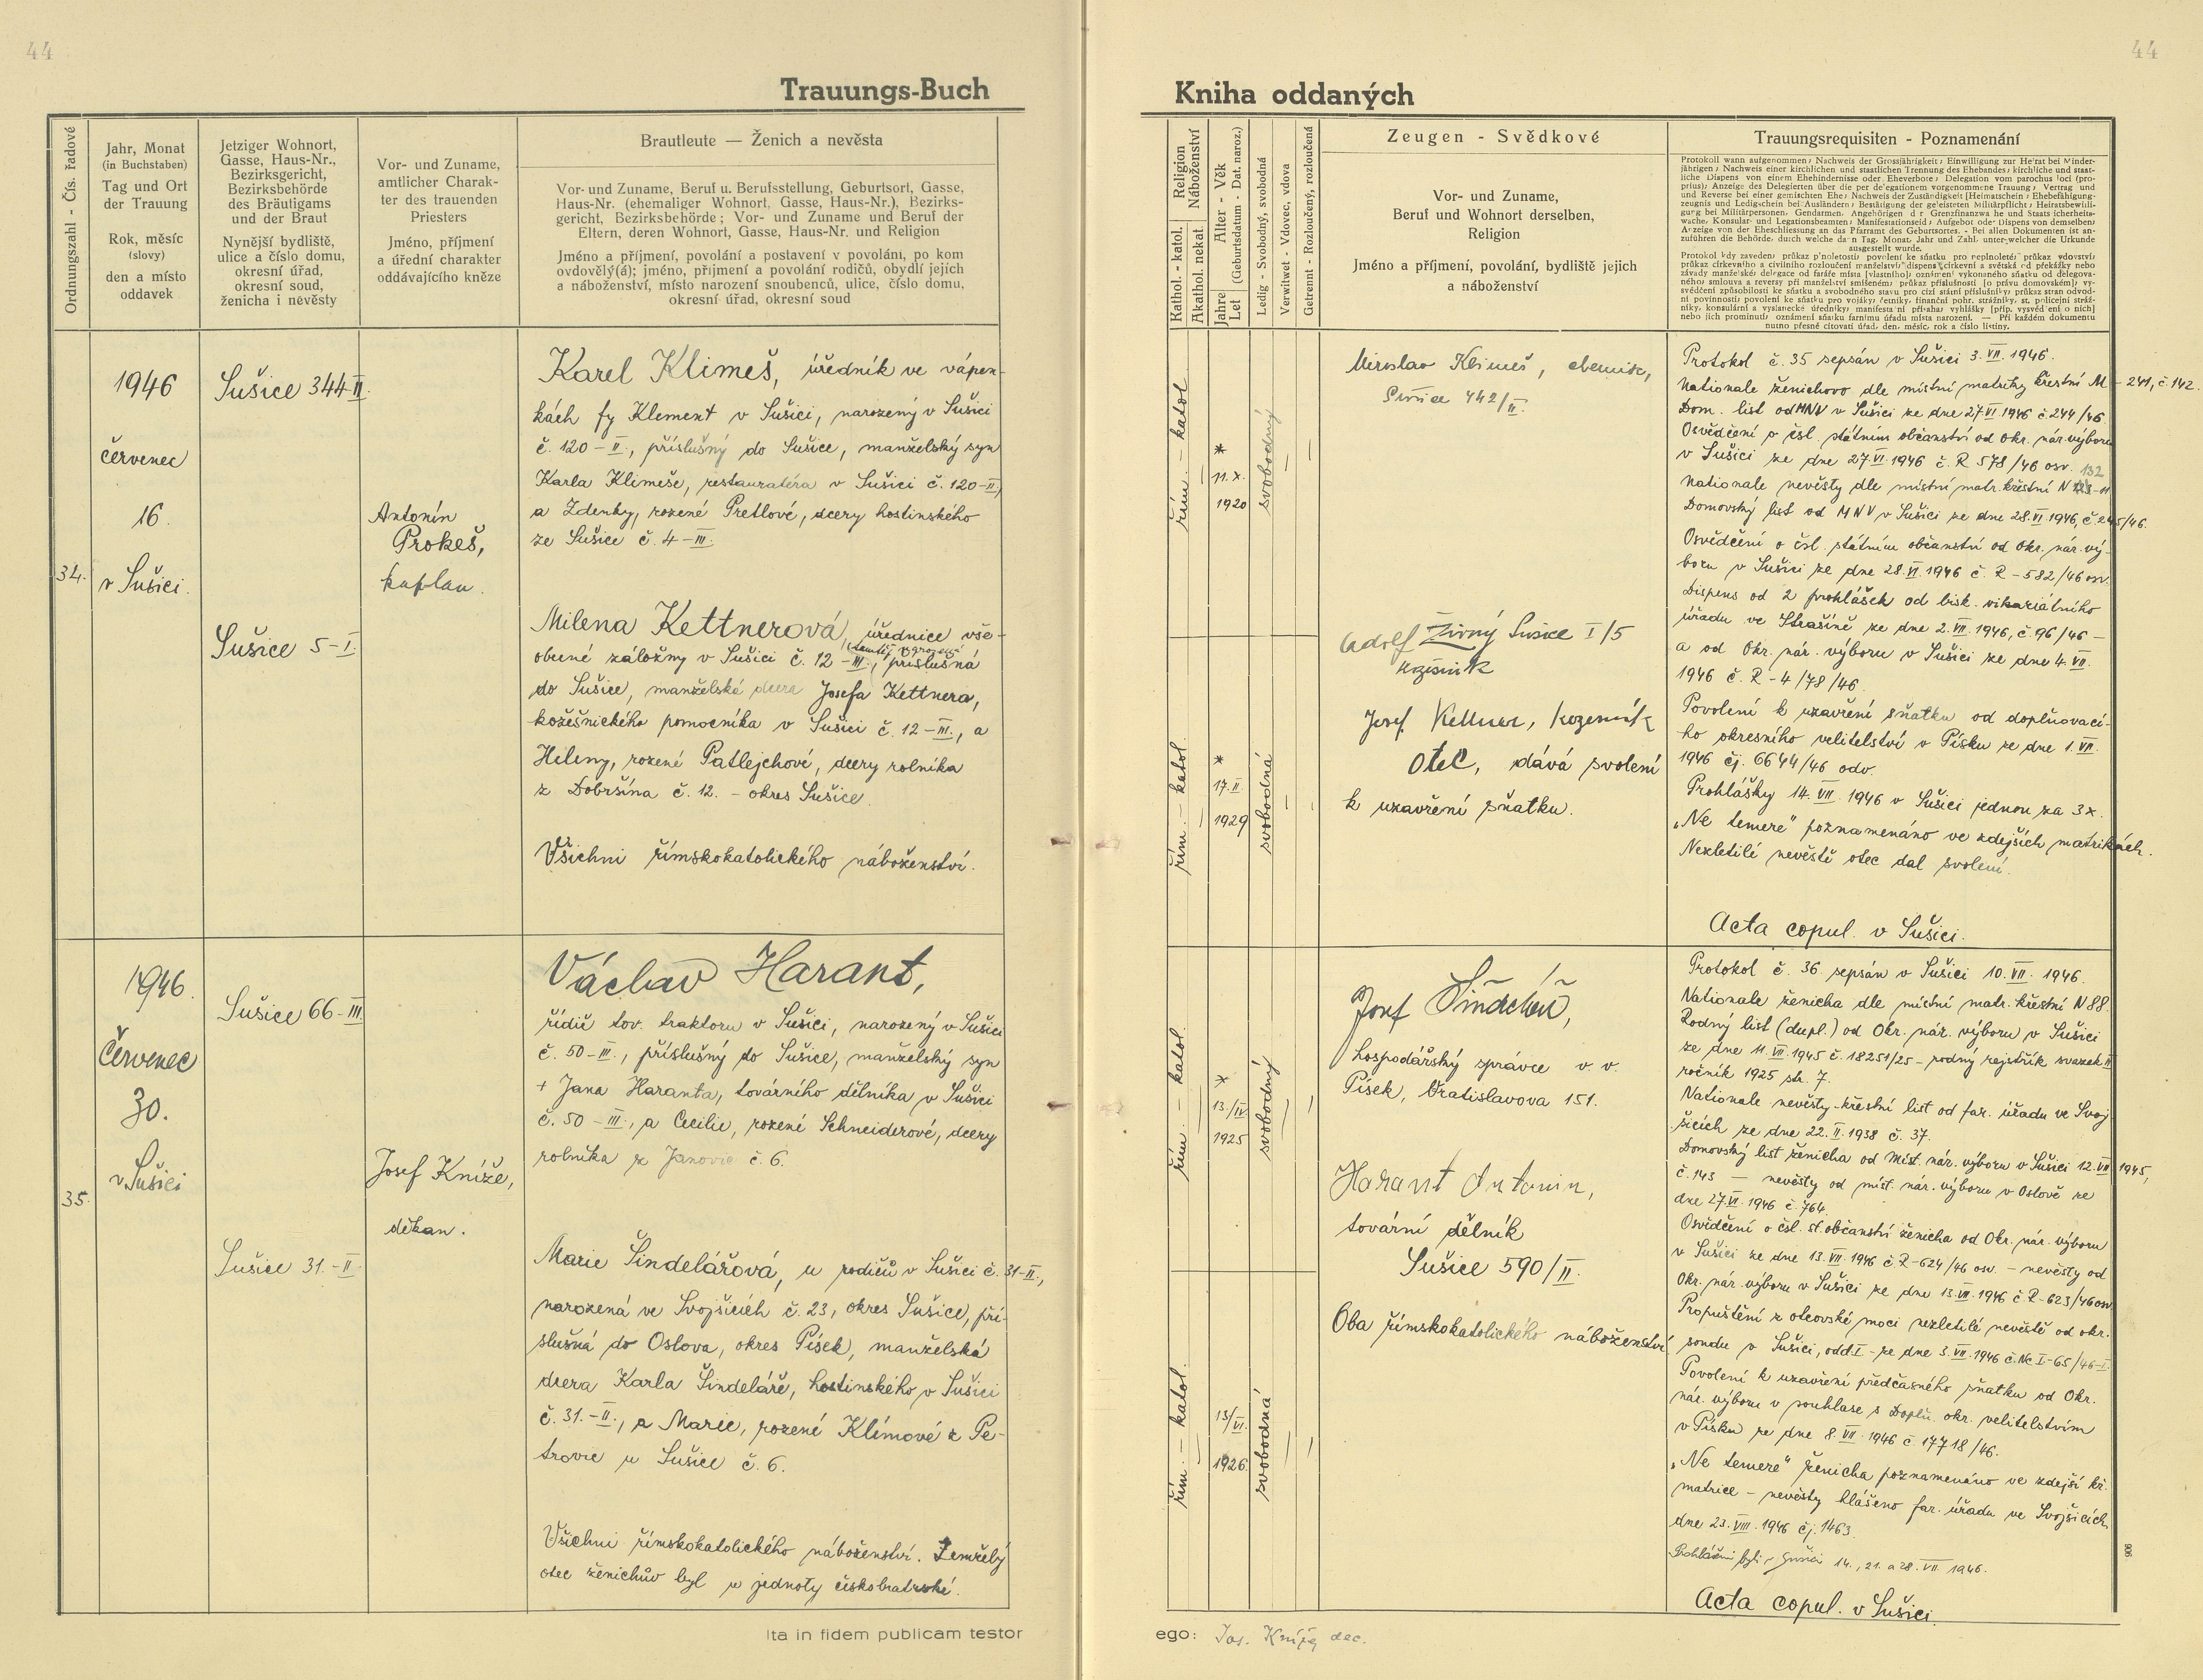 44
44
Trauungs-Buch
Ordnungszahl - Čís. řadové
Jahr, Monat
(in Buchstaben)
Tag und Ort
der Trauung
Rok, měsíc
(slovy)
den a místo
oddavek
Jetziger Wohnort,
Gasse, Haus-Nr.,
Bezirksgericht,
Bezirksbehörde
des Bräutigams
und der Braut
Nynější bydliště,
ulice a číslo domu,
okresní úřad,
okresní soud,
ženicha i nevěsty
Vor- und Zuname,
amtlicher Charak-
ter des trauenden
Priesters
Jméno, příjmení
a úřední charakter
oddávajícího kněze
Brautleute — Ženich a nevěsta
Vor- und Zuname, Beruf u. Berufsstellung, Geburtsort, Gasse,
Haus-Nr. (ehemaliger Wohnort, Gasse, Haus-Nr.), Bezirks-
gericht, Bezirksbehörde; Vor- und Zuname und Beruf der
Eltern, deren Wohnort, Gasse, Haus-Nr. und Religion
Jméno a příjmení, povolání a postavení v povoláni, po kom
ovdovělý(á); jméno, přijmení a povolání rodičů, obydlí jejich
a náboženství, místo narození snoubenců, ulice, číslo domu,
okresní úřad, okresní soud
34.
1946
červenec
16.
v Sušici.
Sušice 344 II.
Sušice 5-I.
Antonín
Prokeš,
kaplan.
Karel Klimeš, úředník ve vápen-
kách fy Klement v Sušici, narozený v Sušici
č. 120-II., příslušný do Sušice, manželský syn
Karla Klimeše, restauratéra v Sušici č. 120-II,
a Zdenky, rozené Pretlové, dcery hostinského
ze Sušice č. 4-III.
Milena Kettnerová, úřednice vše-
obecné záložny v Sušici č. 12-III., příslušná
do Sušice, manželské dcera Josefa Kettnera,
kožešnického pomocníka v Sušici č. 12-III., a
Heleny, rozené Patlejchové, dcery rolníka
z Dobršína č. 12. - okres Sušice.
Všichni římskokatolického náboženství.
35.
1946.
Červenec
30.
v Sušici
Sušice 66-III
Sušice 31.-II
Josef Kníže,
děkan.
Václav Harant,
řidič tov. traktoru v Sušici, narozený v Sušici
č. 50-III., příslušný do Sušice, manželský syn
+ Jana Haranta, továrního dělníka v Sušici
č. 50-III., a Cecilie, rozené Schneiderové, dcery
rolníka z Janovic č. 6.
Marie Šindelářová, u rodičů v Sušici č. 31-II.,
narozená ve Svojšicích č. 23, okres Sušice, pří-
slušná do Oslova, okres Písek, manželská
dcera Karla Šindeláře, hostinského v Sušici
č. 31.-II., a Marie, rozené Klímové z Pe-
trovic u Sušice č. 6.
Všichni římskokatolického náboženství. Zemřelý
otec ženichův byl u jednoty českobratrské.
Ita in fidem publicam testor
Kniha oddaných
Religion
Náboženství
Kathol. - katol.
Akathol. nekat.
Alter - Věk
(Geburtsdatum - Dat. naroz.)
Jahre
Let
Ledig - Svobodný, svobodná
Verwitwet - Vdovec, vdova
Getrennt - Rozloučený, rozloučená
Zeugen - Svědkové
Vor- und Zuname,
Beruf und Wohnort derselben,
Religion
Jméno a příjmení, povolání, bydliště jejich
a náboženství
Trauungsrequisiten - Poznamenání
řím. - katol.
*
11.X.
1920
svobodný
řím. - katol.
*
17.II
1929
svobodná
Miroslav Klimeš, chemik,
Sušice 442/II.
Adolf Živný Sušice I/5
kožišník
Josef Kettner, kožešník
otec, dává svolení
k uzavření sňatku.
Protokol č. 35 sepsán v Sušici 3.VII.1946.
Nationale ženichovo dle místní matriky křestní M - 241, č. 142.
Dom. list od MNV v Sušici ze dne 27.VI.1946 č. 244/46
Osvědčení o čsl. státním občanství od Okr. nár. výboru
v Sušici ze dne 27.VI.1946 č. R 578/46 osv. 132
Nationale nevěsty dle místní matr. křestní N
Domovský list od MNV v Sušici ze dne 28.VI.1946, č. 245/46.
Osvědčení o čsl. státním občanství od Okr. nár. vý-
boru v Sušici ze dne 28.VI.1946 č. R-582/46 osv.
Dispens od 2 prohlášek od bisk. vikariátního
úřadu ve Strašíně ze dne 2.VII.1946, č. 96/46 -
a od Okr. nár. výboru v Sušici ze dne 4.VII.
1946 č. R-4/78/46.
Povolení k uzavření sňatku od doplňovací-
ho okresního velitelství v Písku ze dne 1.VII.
1946 čj. 6644/46 odv.
Prohlášky 14.VII.1946 v Sušici jednou za 3x.
„Ne temere“ poznamenáno ve zdejších matrikách.
Nezletilé nevěstě otec dal svolení.
Acta copul. v Sušici.
řím. - katol.
*
13./IV.
1925
svobodný
řím. - katol.
13/VI.
1926.
svobodná
Josef Šindelář,
hospodářský správce v. v.
Písek, Bratislavova 151.
Harant Antonin,
tovární dělník
Sušice 590/II.
Oba římskokatolického náboženství
Protokol č. 36. sepsán v Sušici 10.VII.1946.
Nationale ženicha dle místní matr. křestní N 88.
Rodný list (dupl.) od Okr. nár. výboru v Sušici
ze dne 11.VII.1945 č. 18251/25 - rodný rejstřík svazek II
ročník 1925 str. 7.
Nationale nevěsty - křestní list od far. úřadu ve Svoj-
šicích ze dne 22.II.1938 č. 37.
Domovský list ženicha od Míst. nár. výboru v Sušici 12.VII.1945,
č. 143 - nevěsty od míst. nár. výboru v Oslově ze
dne 27.VI.1946 č. 764.
Osvědčení o čsl. st. občanství ženicha od Okr. nár. výboru
v Sušici ze dne 13.VII.1946 č. R-624/46 osv. - nevěsty od
Okr. nár. výboru v Sušici ze dne 13.VII.1946 č. R-623/46 osv.
Propuštění z otcovské moci nezletilé nevěstě od okr.
soudu v Sušici, odd. I - ze dne 3.VII.1946 č. Nc I-65/46-I
Povolení k uzavření předčasného sňatku od Okr.
nár. výboru v souhlase s Doplň. okr. velitelstvím
v Písku ze dne 8.VII.1946 č. 17718/46.
„Ne temere“ ženicha poznamenáno ve zdejší kř.
matrice - nevěsty hlášeno far. úřadu ve Svojšicích
dne 23.VIII.1946 čj. 1463.
v Sušici 14., 21. a 28.VII.1946.
Acta copul. v Sušici
906
ego: Jos. Kníže, dec.